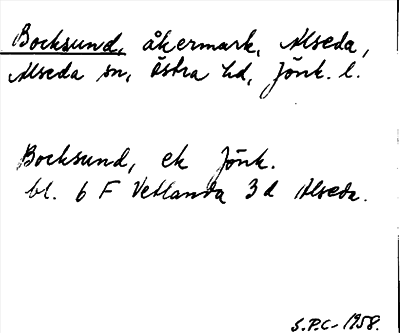 Bocksund, åkermark, Alseda,
Alseda sn, Östra hd, Jönk. l.
Bocksund, ek Jönk.
bl. 6 F Vetlanda 3 d Alseda.
S.P.C- 1958.